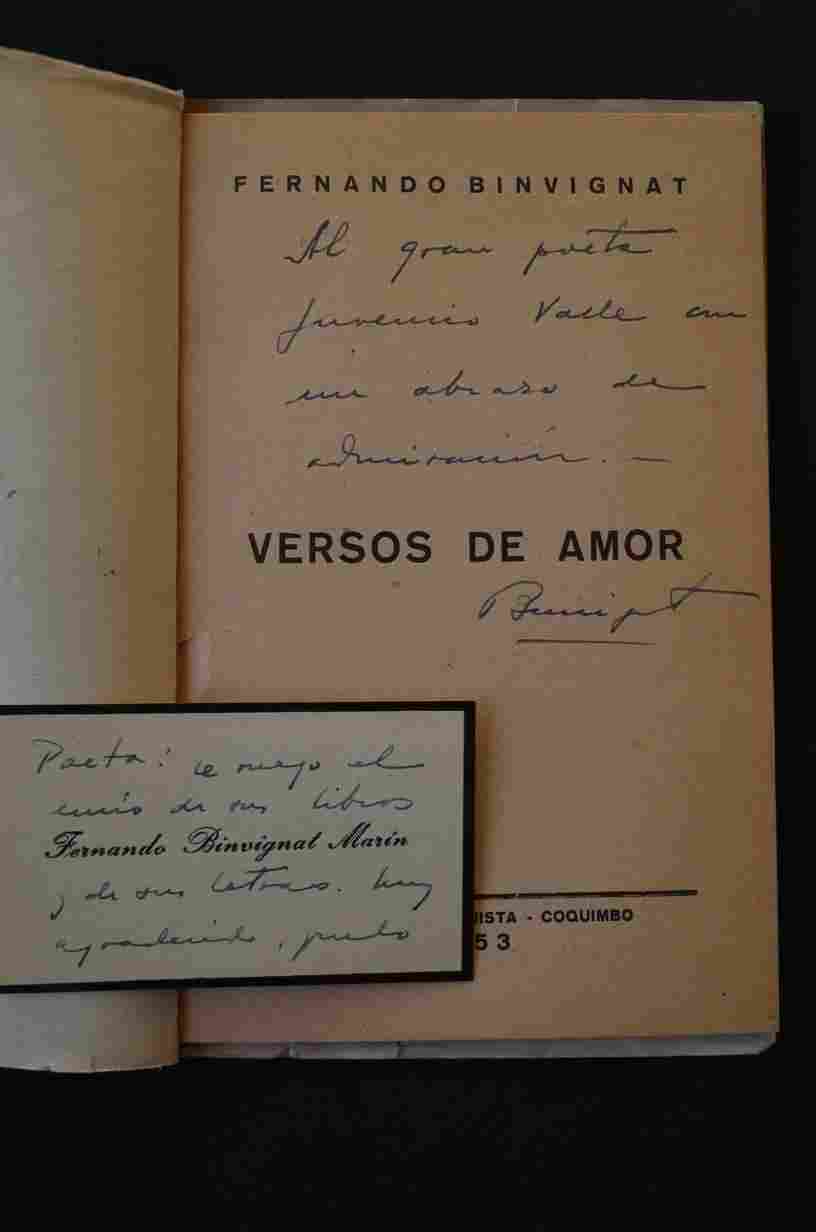 FERNANDO BINVIGNAT
Al gran poeta
Juvencio Valle con
un abrazo de
admiración. —
VERSOS DE AMOR
Binvignat
Poeta: le ruego el
envío de sus libros
Fernando Binvignat Marín
y de sus letras. Muy
agradecido,
UISTA - COQUIMBO
53